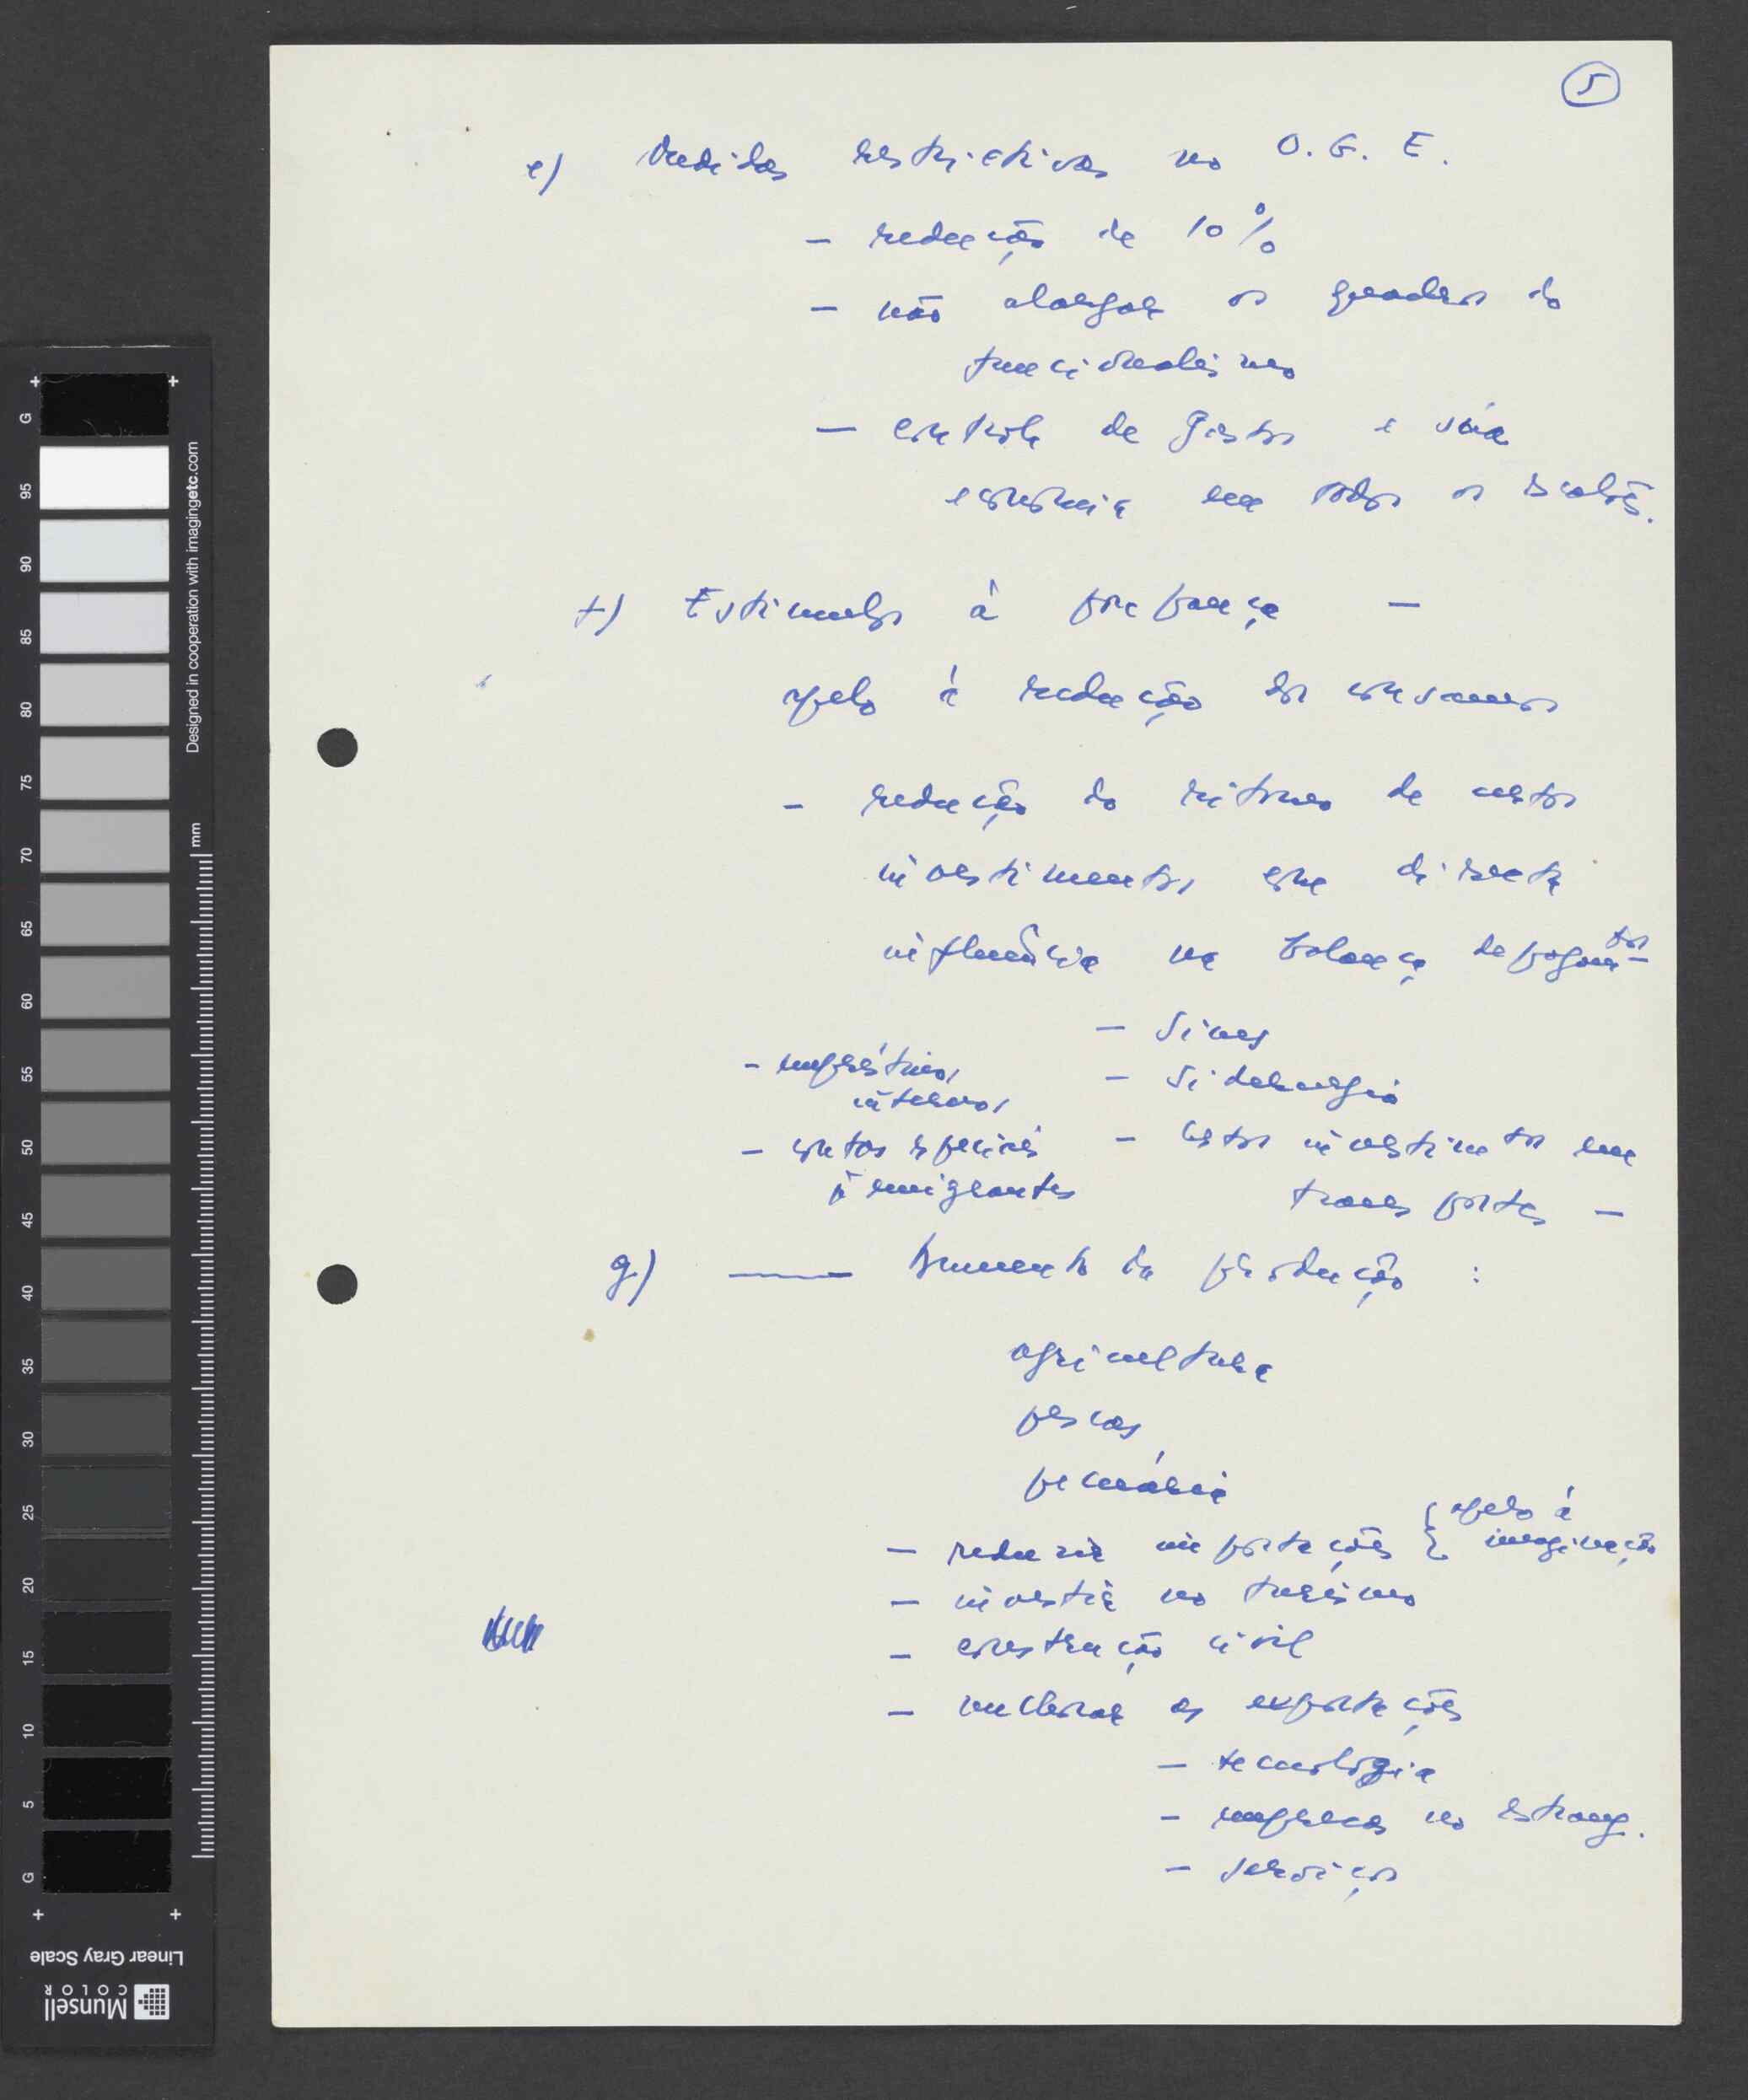 5
e) Medidas restrictivas no O. G. E.
- redução de 10%
- não alargar os quadros do
funcionalismo
- contrôle de gastos e séria
economia em todos os escalões.
f) Estimulos à poupança -
apelo à redução dos consumos
- redução do ritmo de certos
investimentos com directa
influência na balança de pagamtos
- Sines
- empréstimos
internos
- Siderurgia
- contas especiais
à emigrantes
- Certos investimtos em
transportes -
g) — Aumento da produção :
agricultura
pescas
pecuária
- reduzir importações { apelo à
imaginação
- investir no turismo
- construção civil
- melhorar as exportações
- tecnologia
- empresas no estrang.
- serviços
G 95 90 85 80 75 70 65 60 55 50 45 40 35 30 25 20 15 10 5 G
Designed in cooperation with imagingetc.com
mm
Linear Gray Scale
Munsell
COLOR